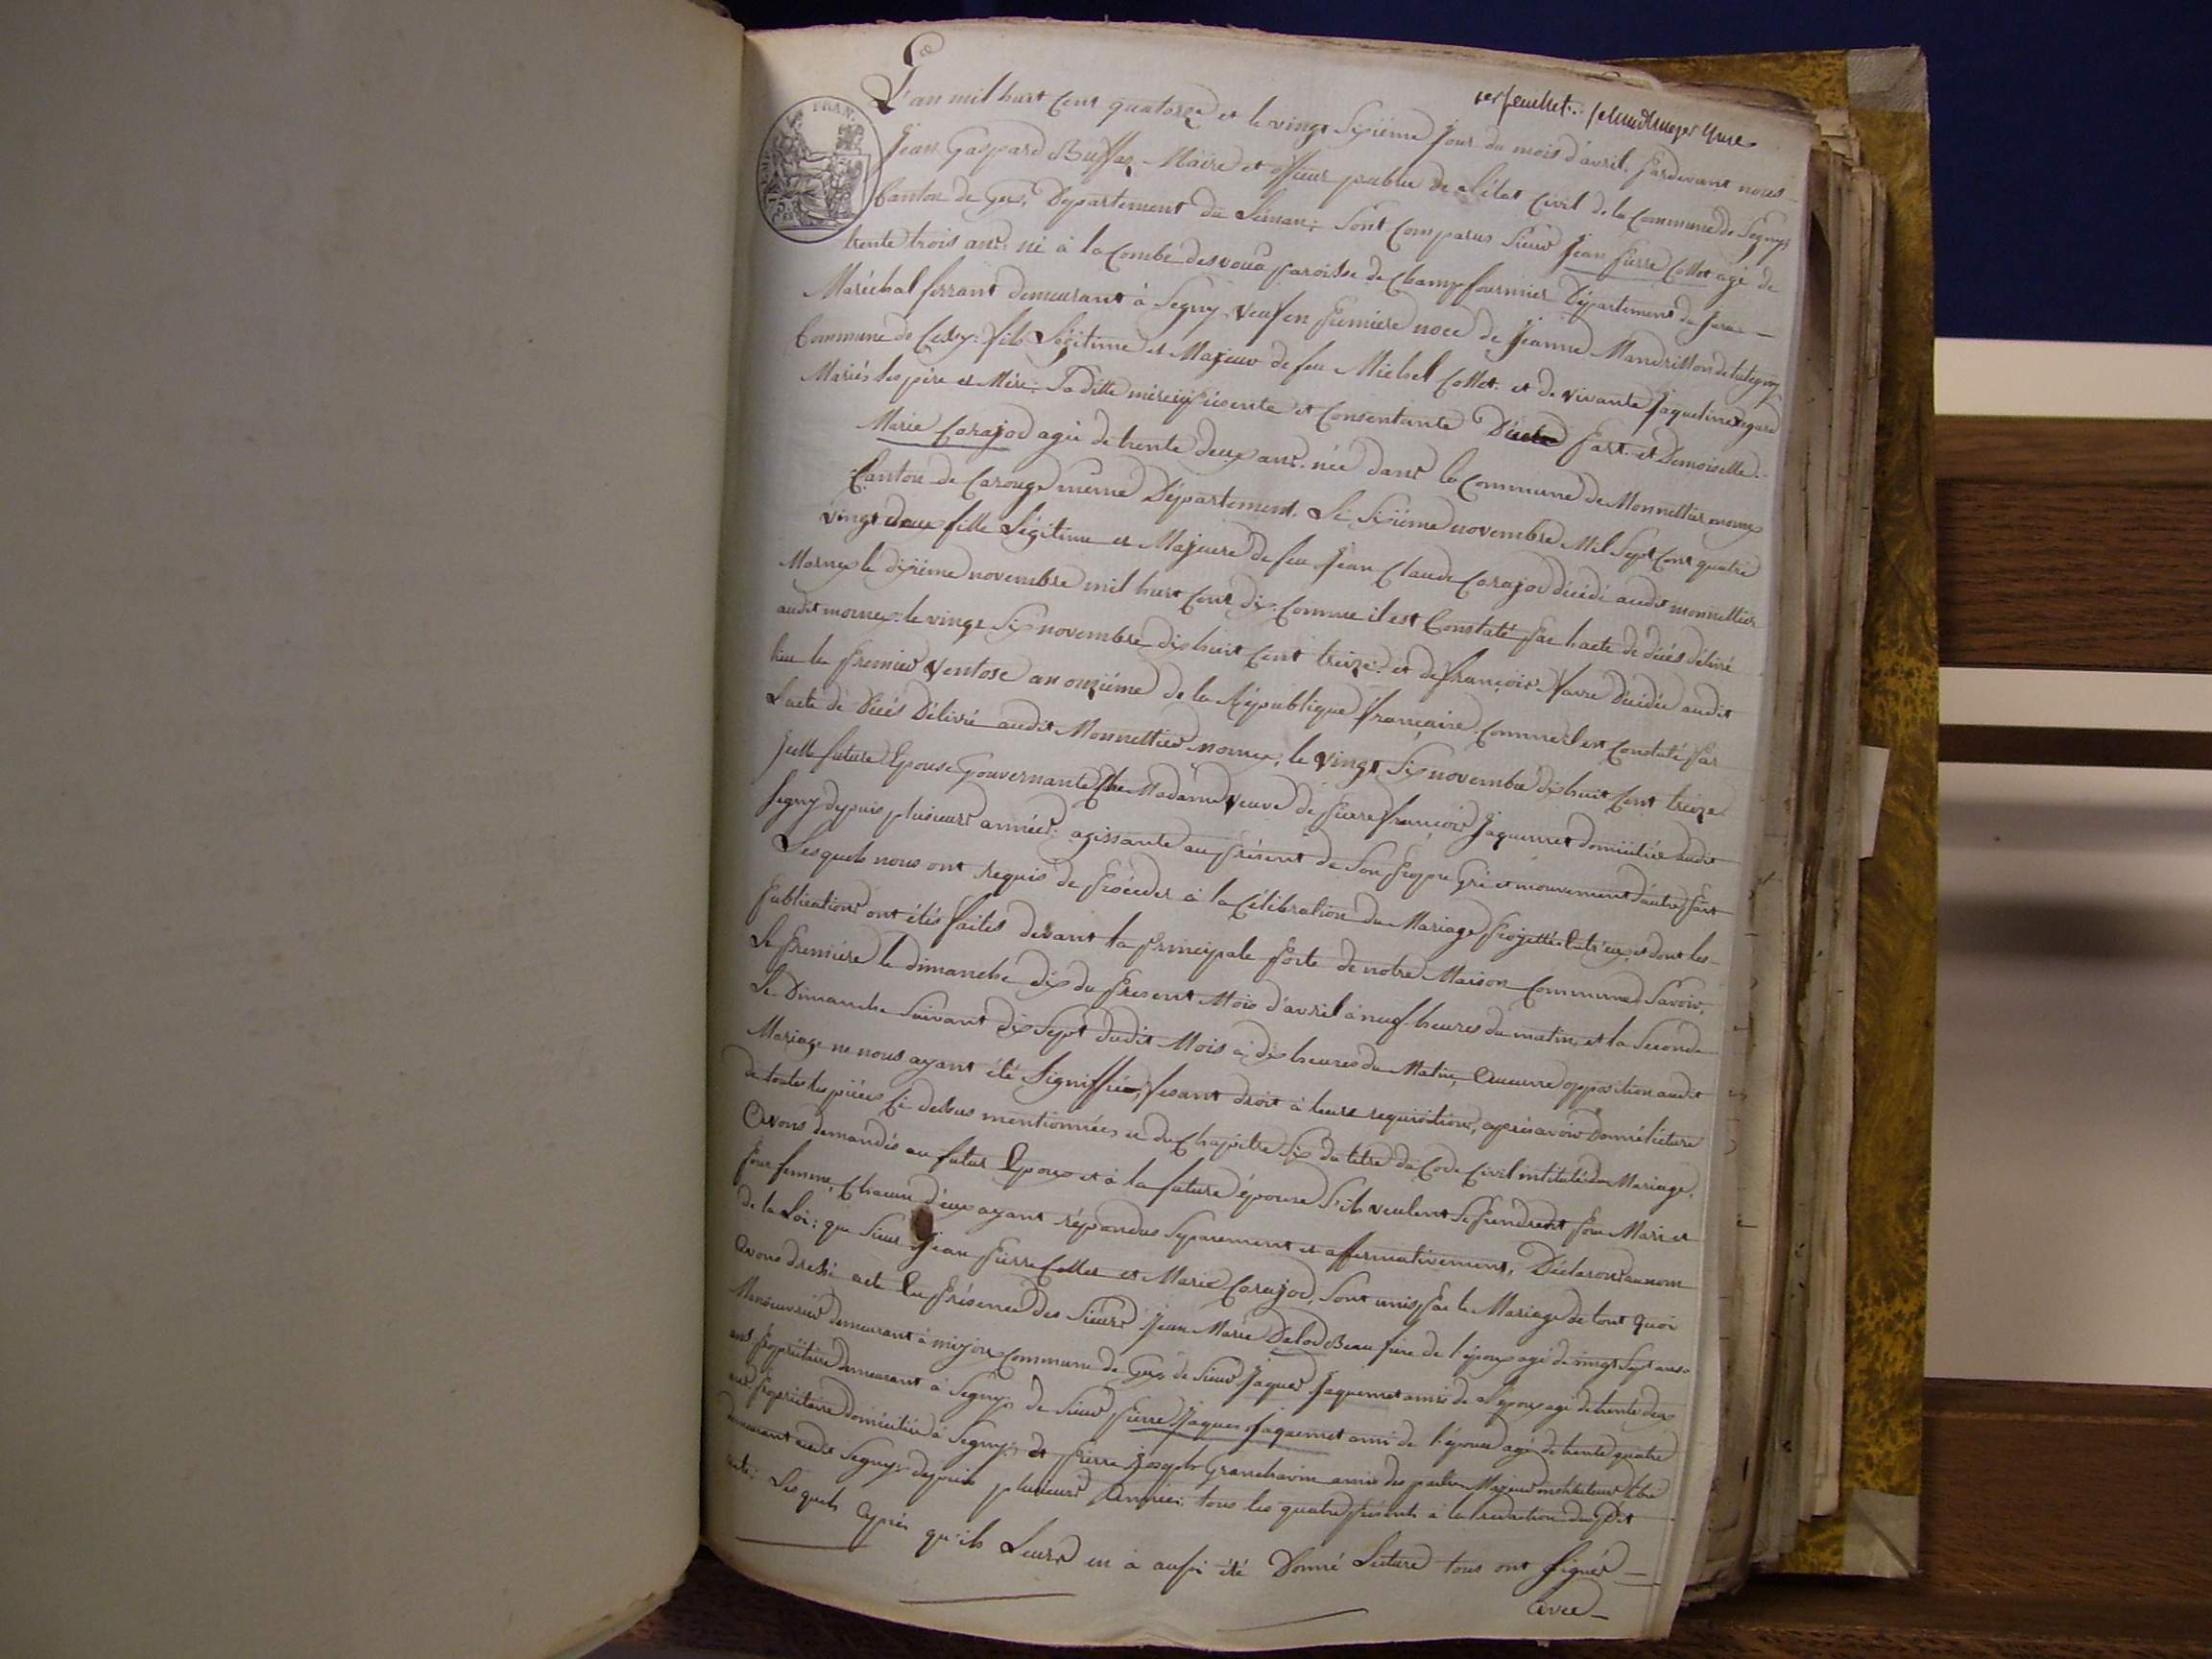 1er feuillet.
L'an mil huit Cent quatorze et le vingt Sixiéme Jour du mois d'avril. Pardevant nous
Jean Gaspard Buffaz Maire et officier public de l'état Civil de la Commune de Segny
Canton de Gex, Département du Léman; Sont Comparus Sieur Jean Pierre Collet agé de
trente trois ans: né à la Combe desvoua paroisse de Champfourmier Département du Jura
Maréchal ferrant demeurant à Segny, Veuf en premiere noce de Jeanne Mandrillon de
Commune de Cessy: fils Légitime et Majeur de feu Michel Collet. et de vivante Jaqueline Regard
Mariés ses père et Mère: Sa ditte mère ici présente et Consentante D'une Part. et Demoiselle
Marie Corajod agée de trente deux ans. née dans la Commune de Monnettier mornex
Canton de Carouge même Département. Le Sixiéme novembre Mil Sept Cent quatre
vingt deux fille Légitime et Majeure de feu Jean Claude Corajod décédé audit monnettier
Mornex le dixiéme novembre mil huit Cent dix. Comme il est Constaté par l'acte de décés délivré
audit mornex. le vingt Six novembre dix huit Cent treize. et de françoise Favre Décédée audit
lieu le Premier Ventose an onziéme de la République française. Comme il est Constaté Par
L'acte de Décés Délivré audit Monnettier mornex, le vingt Six novembre dix huit Cent treize
Icelle future Epouse Gouvernante Chez Madame Veuve de Pierre françois Jaquemet domiciliée audit
Segny depuis plusieurs années: agissante au Présent de Son Propre Gré et mouvement d'autre Part
Lesquels nous ont requis de Procéder à la Célébration du Mariage Projetté Entr'eux, et dont les
Publications ont étés faites devant la Principale Porte de notre Maison Commune Savoir,
La Premiére le dimanche dix du Present Mois d'avril à neuf heures du matin, et la Seconde
Le Dimanche Suivant dix Sept dudit Mois à dix heures du Matin, Aucune opposition audit
Mariage ne nous ayant été Signiffiée, fesant droit à leurs requisitions, après avoir Donné lécture
de toutes les piéces Ci dessus mentionnées et du Chapitre Six du titre du Code Civil intitulé du Mariage,
Avons demandés au futur Epoux et à la future épouse S'ils veulent Se Prendrent Pour Mari et
Pour femme, Chacun d'eux ayant répondus Séparement et affermativement, Déclarons au nom
de la Loi: que Sieur Jean Pierre Collet et Marie Corajod, Sont unis Par le Mariage de tout quoi
Avons dressé acte En Présence des Sieurs Jean Marie Dalod Beau frère de l'époux agé de vingt Sept ans
Manoeuvrier demeurant à mijoux Commune de Gex, de Sieur Jaques Jaquemet ami de l'époux agé de trente deux
ans Propriétaire demeurant à Segny, de Sieur Pierre Jaques Jaquemet ami de l'épouse agé de trente quatre
ans Propriétaire domicilié à Segny: et Pierre Joseph Grandhavin ami des parties Majeur instituteur
demeurant audit Segny depuis plusieurs Années. tous les quatre Présents à la redaction du Pdit
acte: Lesquels Après qu'ils Leurs en à aussi été Donné Lecture tous ont Signés
Avec